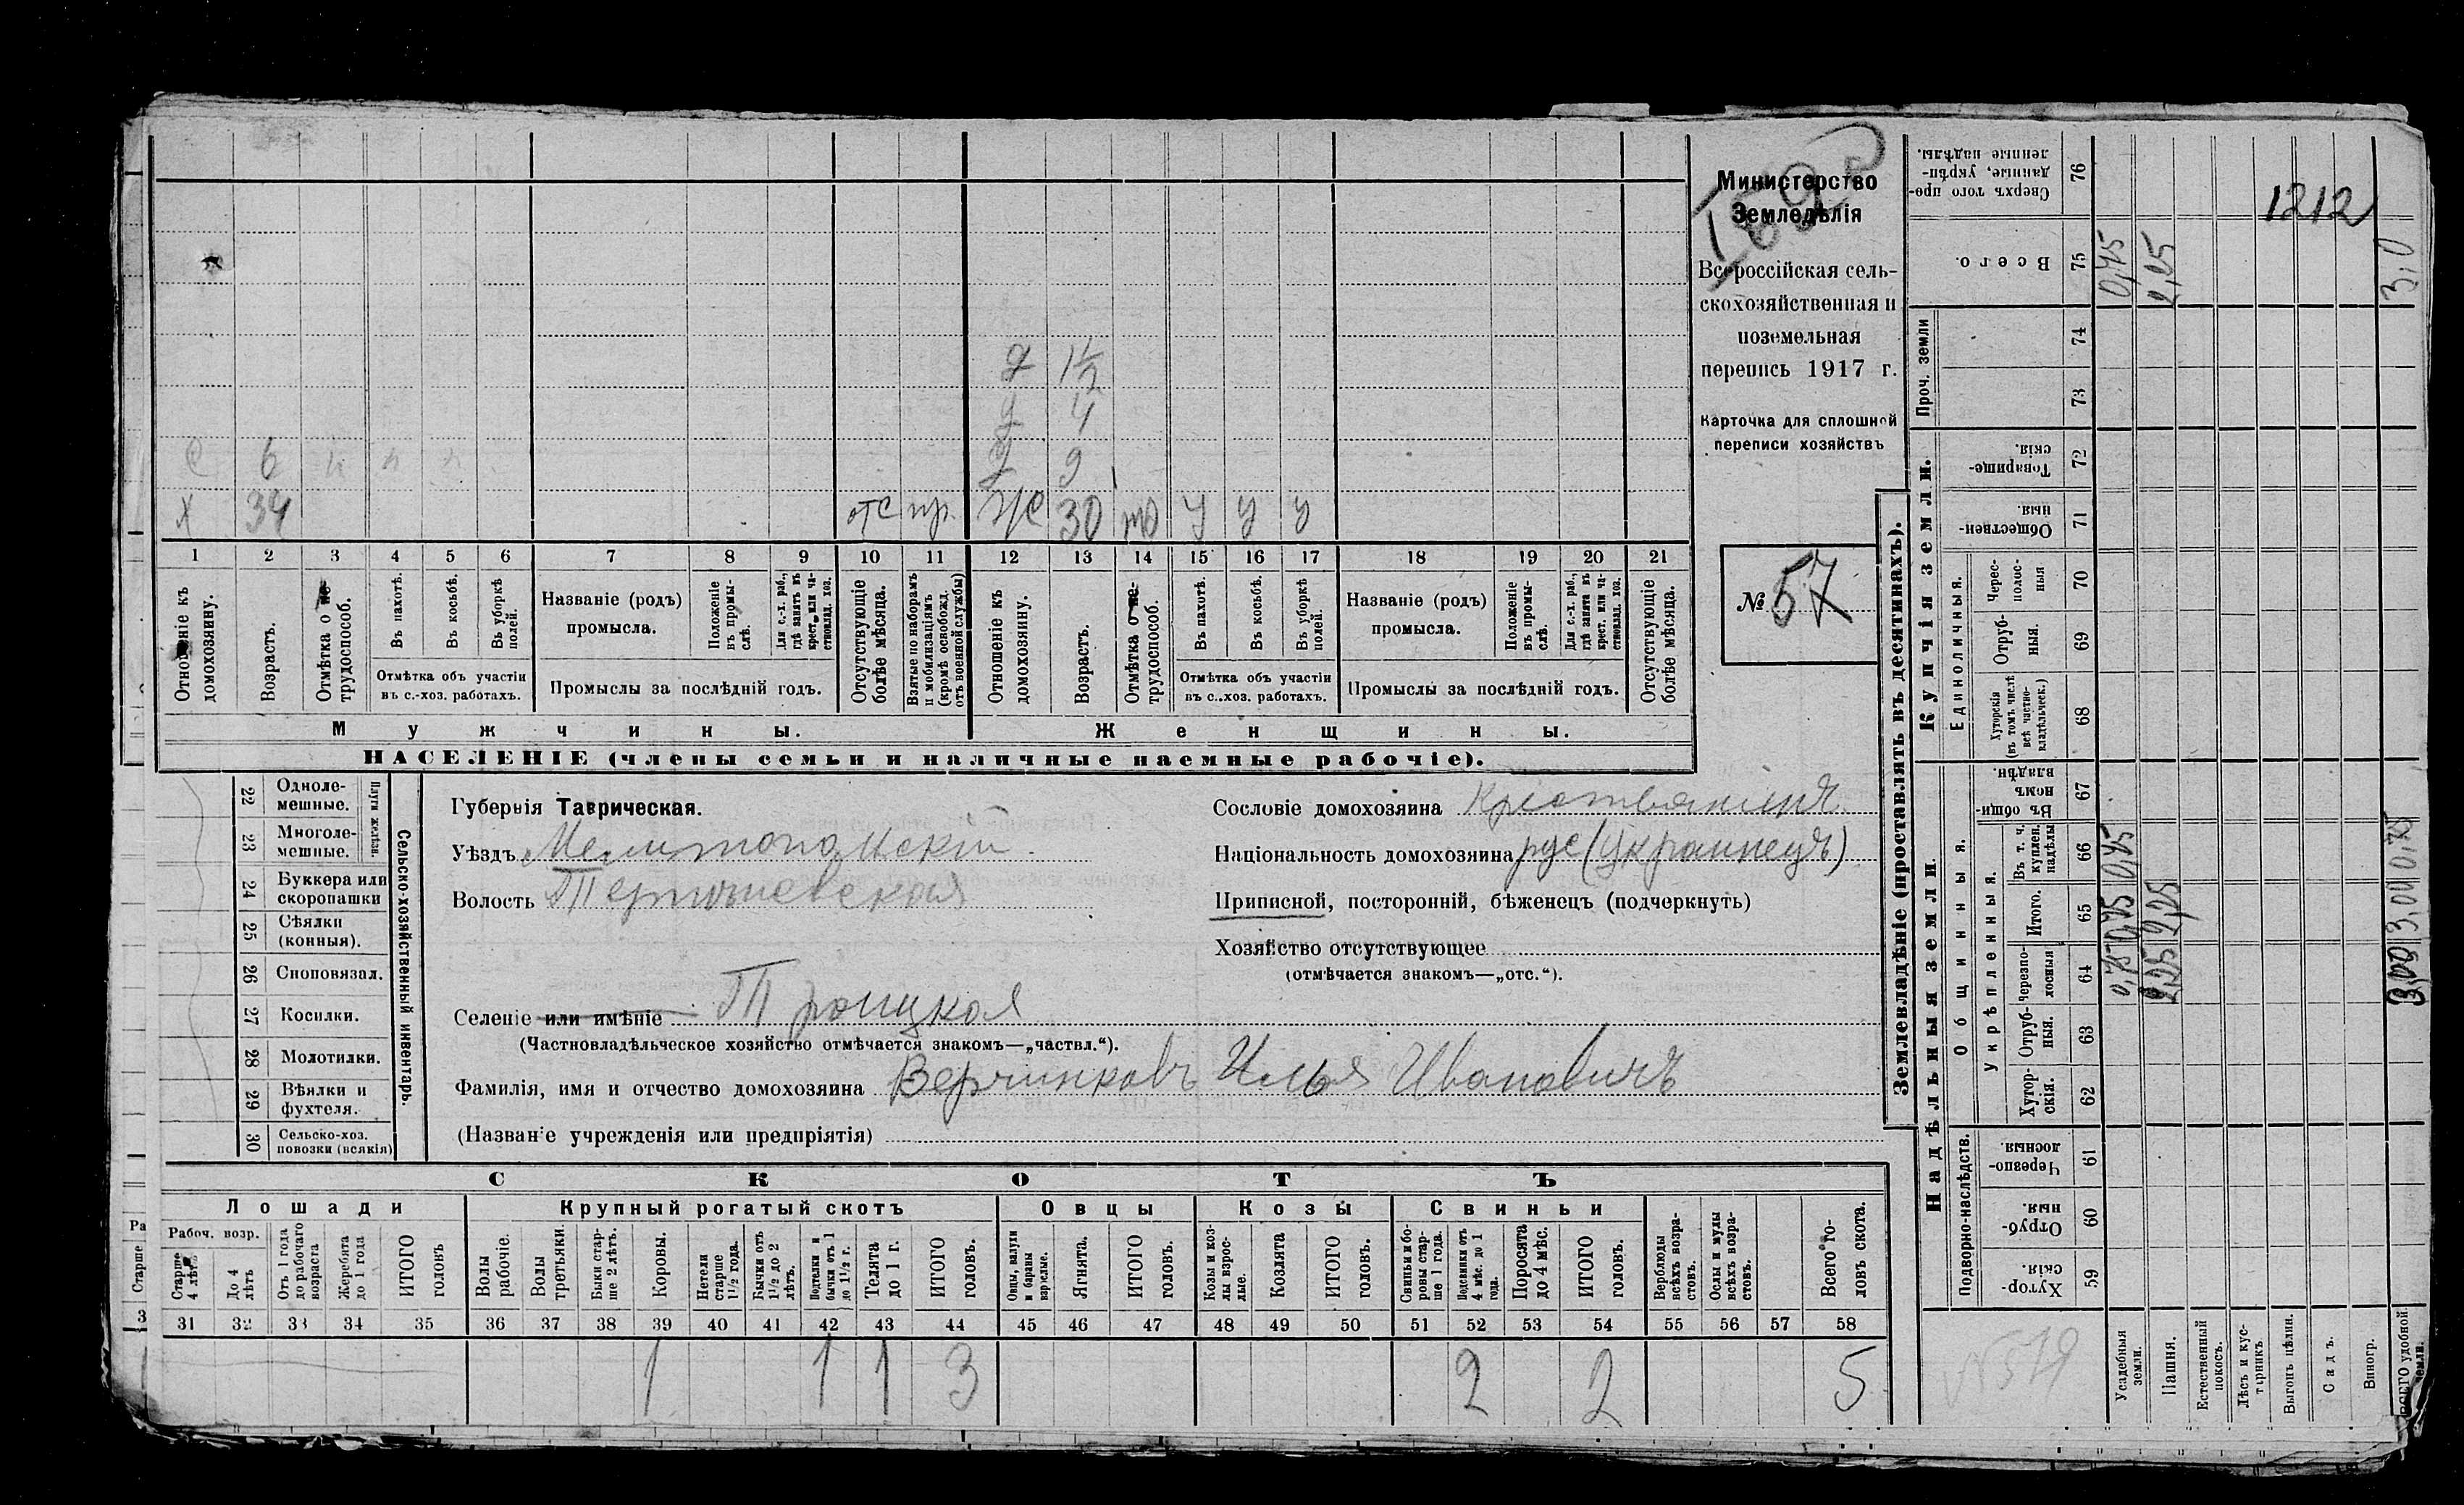 1892
Министерство
Земледѣлія
Всероссійская сель-
скохозяйственная и
поземельная
перепись 1917 г.
Карточка для сплошной
переписи хозяйствъ
№ 57
д 1½
д 4
д 9
с 6 н н н
х 34 отс пр. ж 30 тр у у у
1 2 3 4 5 6 7 8 9 10 11 12 13 14 15 16 17 18 19 20 21
Отношеніе къ домохозяину.
Возрастъ.
Отмѣтка о не-трудоспособ.
Въ пахотѣ.
Въ косьбѣ.
Въ уборкѣ полей.
Отмѣтка объ участіи
въ с.-хоз. работахъ.
Названіе (родъ)
промысла.
Положеніе въ промы-слѣ.
Для с.-х. раб., гдѣ занятъ въ крест. или ча-стновлад. хоз.
Промыслы за послѣдній годъ.
Отсутствующіе болѣе мѣсяца.
Взятые по наборамъ и мобилизаціямъ (кромѣ освобожд. отъ военной службы)
Отношеніе къ домохозяину.
Возрастъ.
Отмѣтка о не-трудоспособ.
Въ пахотѣ.
Въ косьбѣ.
Въ уборкѣ полей.
Отмѣтка объ участіи
въ с.-хоз. работахъ.
Названіе (родъ)
промысла.
Положеніе въ промы-слѣ.
Для с.-х. раб., гдѣ занята въ крест. или ча-стновлад. хоз.
Промыслы за послѣдній годъ.
Отсутствующіе болѣе мѣсяца.
Мужчины.
Женщины.
НАСЕЛЕНІЕ (члены семьи и наличные наемные рабочіе).
Сельско-хозяйственный инвентарь.
Плуги желѣзн.
22 Однолемешные.
23 Многолемешные.
24 Буккера или скоропашки
25 Сѣялки (конныя).
26 Сноповязал.
27 Косилки.
28 Молотилки.
29 Вѣялки и фухтеля.
30 Сельско-хоз. повозки (всякія)
Губернія Таврическая.
Уѣздъ Мелитопольскій
Волость
Селеніе или имѣніе Троицкоя
(Частновладѣльческое хозяйство отмѣчается знакомъ—„частвл.“).
Фамилія, имя и отчество домохозяина Верчинковъ Илья Ивановичъ
(Названіе учрежденія или предпріятія)
Сословіе домохозяина Крестьянинъ
Національность домохозяина рус (украинецъ)
Приписной, посторонній, бѣженецъ (подчеркнуть)
Хозяйство отсутствующее
(отмѣчается знакомъ—„отс.“).
СКОТЪ
Лошади
Крупный рогатый скотъ
Овцы
Козы
Свиньи
Рабоч. возр.
Старше 4 лѣтъ
До 4 лѣтъ
Отъ 1 года до рабочаго возраста
Жеребята до 1 года
ИТОГО головъ
Волы рабочіе.
Волы третьяки.
Быки стар-ше 2 лѣтъ.
Коровы.
Нетели старше 1½ года.
Бычки отъ 1½ до 2 лѣтъ.
Подтелки и бычки отъ 1 до 1½ г.
Телята до 1 г.
ИТОГО головъ.
Овцы, валухи и бараны взрослые.
Ягнята.
ИТОГО головъ.
Козы и коз-лы взрос-лые.
Козлята
ИТОГО головъ.
Свиньи и бо-ровы стар-ше 1 года.
Подсвинки отъ 4 мѣс. до 1 года.
Поросята до 4 мѣс.
ИТОГО головъ.
Верблюды всѣхъ возра-стовъ.
Ослы и мулы всѣхъ возра-стовъ.
Всего го-ловъ скота.
31 32 33 34 35 36 37 38 39 40 41 42 43 44 45 46 47 48 49 50 51 52 53 54 55 56 57 58
1 1 1 3 2 2 5
Землевладѣніе (проставлять въ десятинахъ).
Надѣльныя земли.
Купчія земли.
Проч. земли
Подворно-наслѣдств.
Общинныя.
Укрѣпленныя.
Единоличныя.
76 Сверхъ того про-данные, укрѣп-ленные надѣлы.
75 Всего.
74
73
72 Товарище-скія
71 Обществен-ныя.
70 Черес-полос-ныя
69 Отруб-ныя.
68 Хуторскія (въ томъ числѣ всѣ частно-владѣльческ.)
67 Въ общи-номъ владѣн.
66 Въ т. ч. куплен. надѣлы
65 Итого.
64 Черезпо-лосныя
63 Отруб-ныя.
62 Хутор-скія.
61 Черезпо-лосныя
60 Отруб-ныя.
59 Хутор-скія.
1212
0,75 2,25 3,0
0,75 0,75 0,75
2,25 2,25
3,00 3,00 0,75
Усадебныя земли.
Пашня.
Естественный покосъ.
Лѣсъ и кус-тарникъ
Выгонъ цѣлин.
Садъ.
Виногр.
ВСЕГО удобной земли.